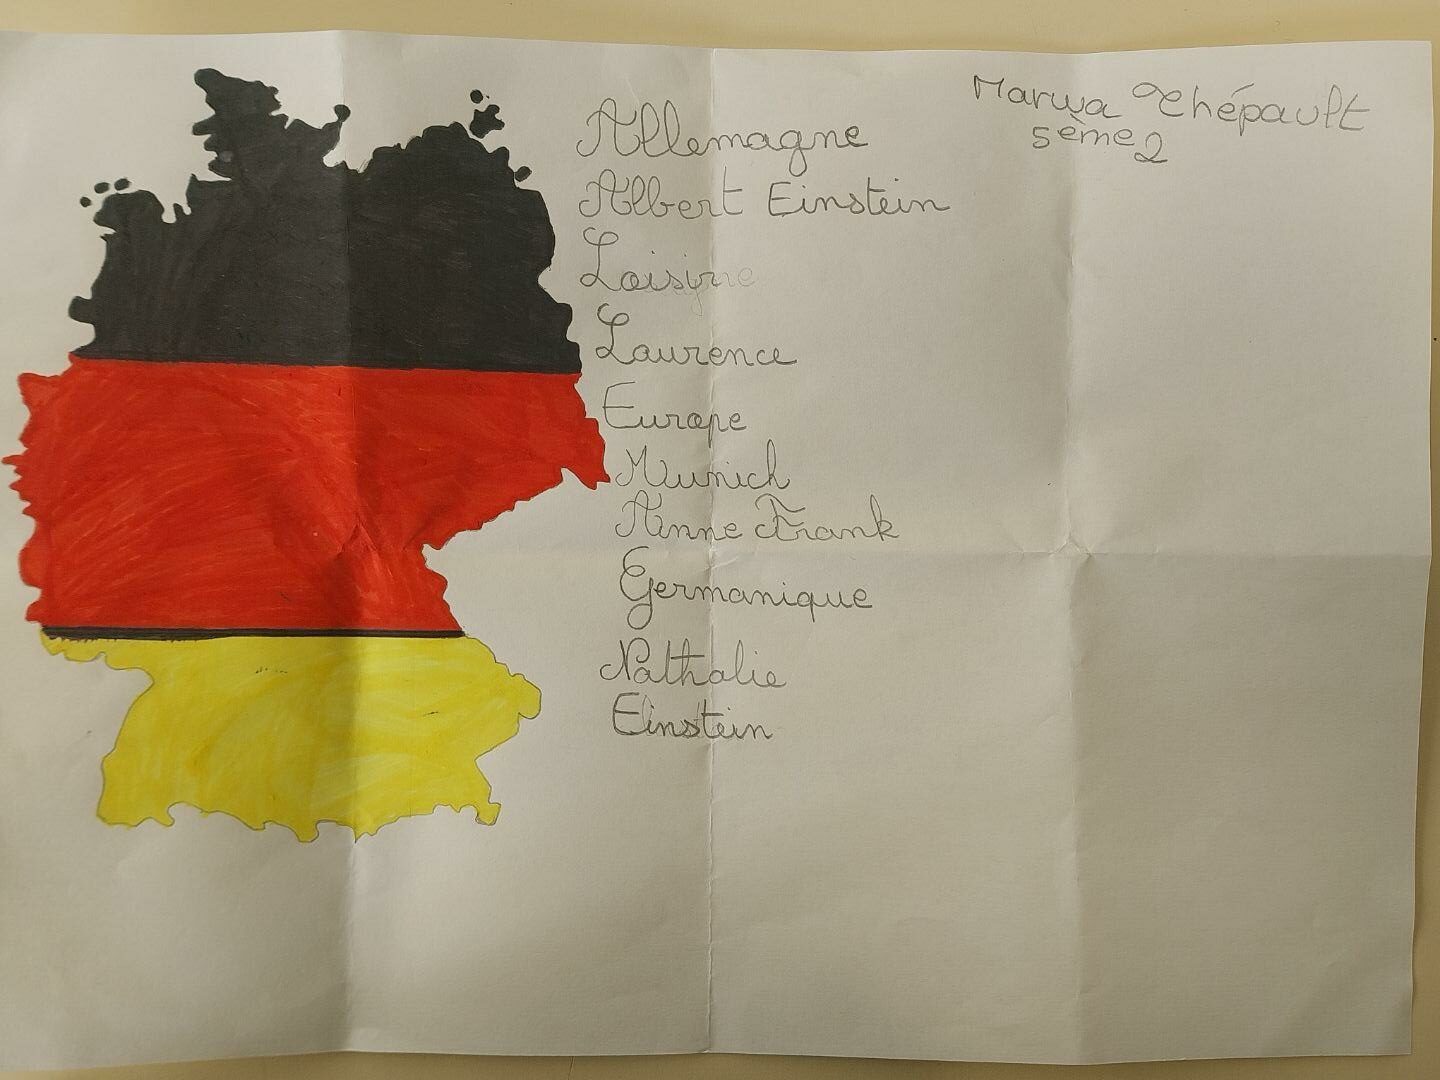 Marwa Thépault
5ème2
Allemagne
Albert Einstein
Loisirne
Laurence
Europe
Munich
Anne Frank
Germanique
Nathalie
Einstein